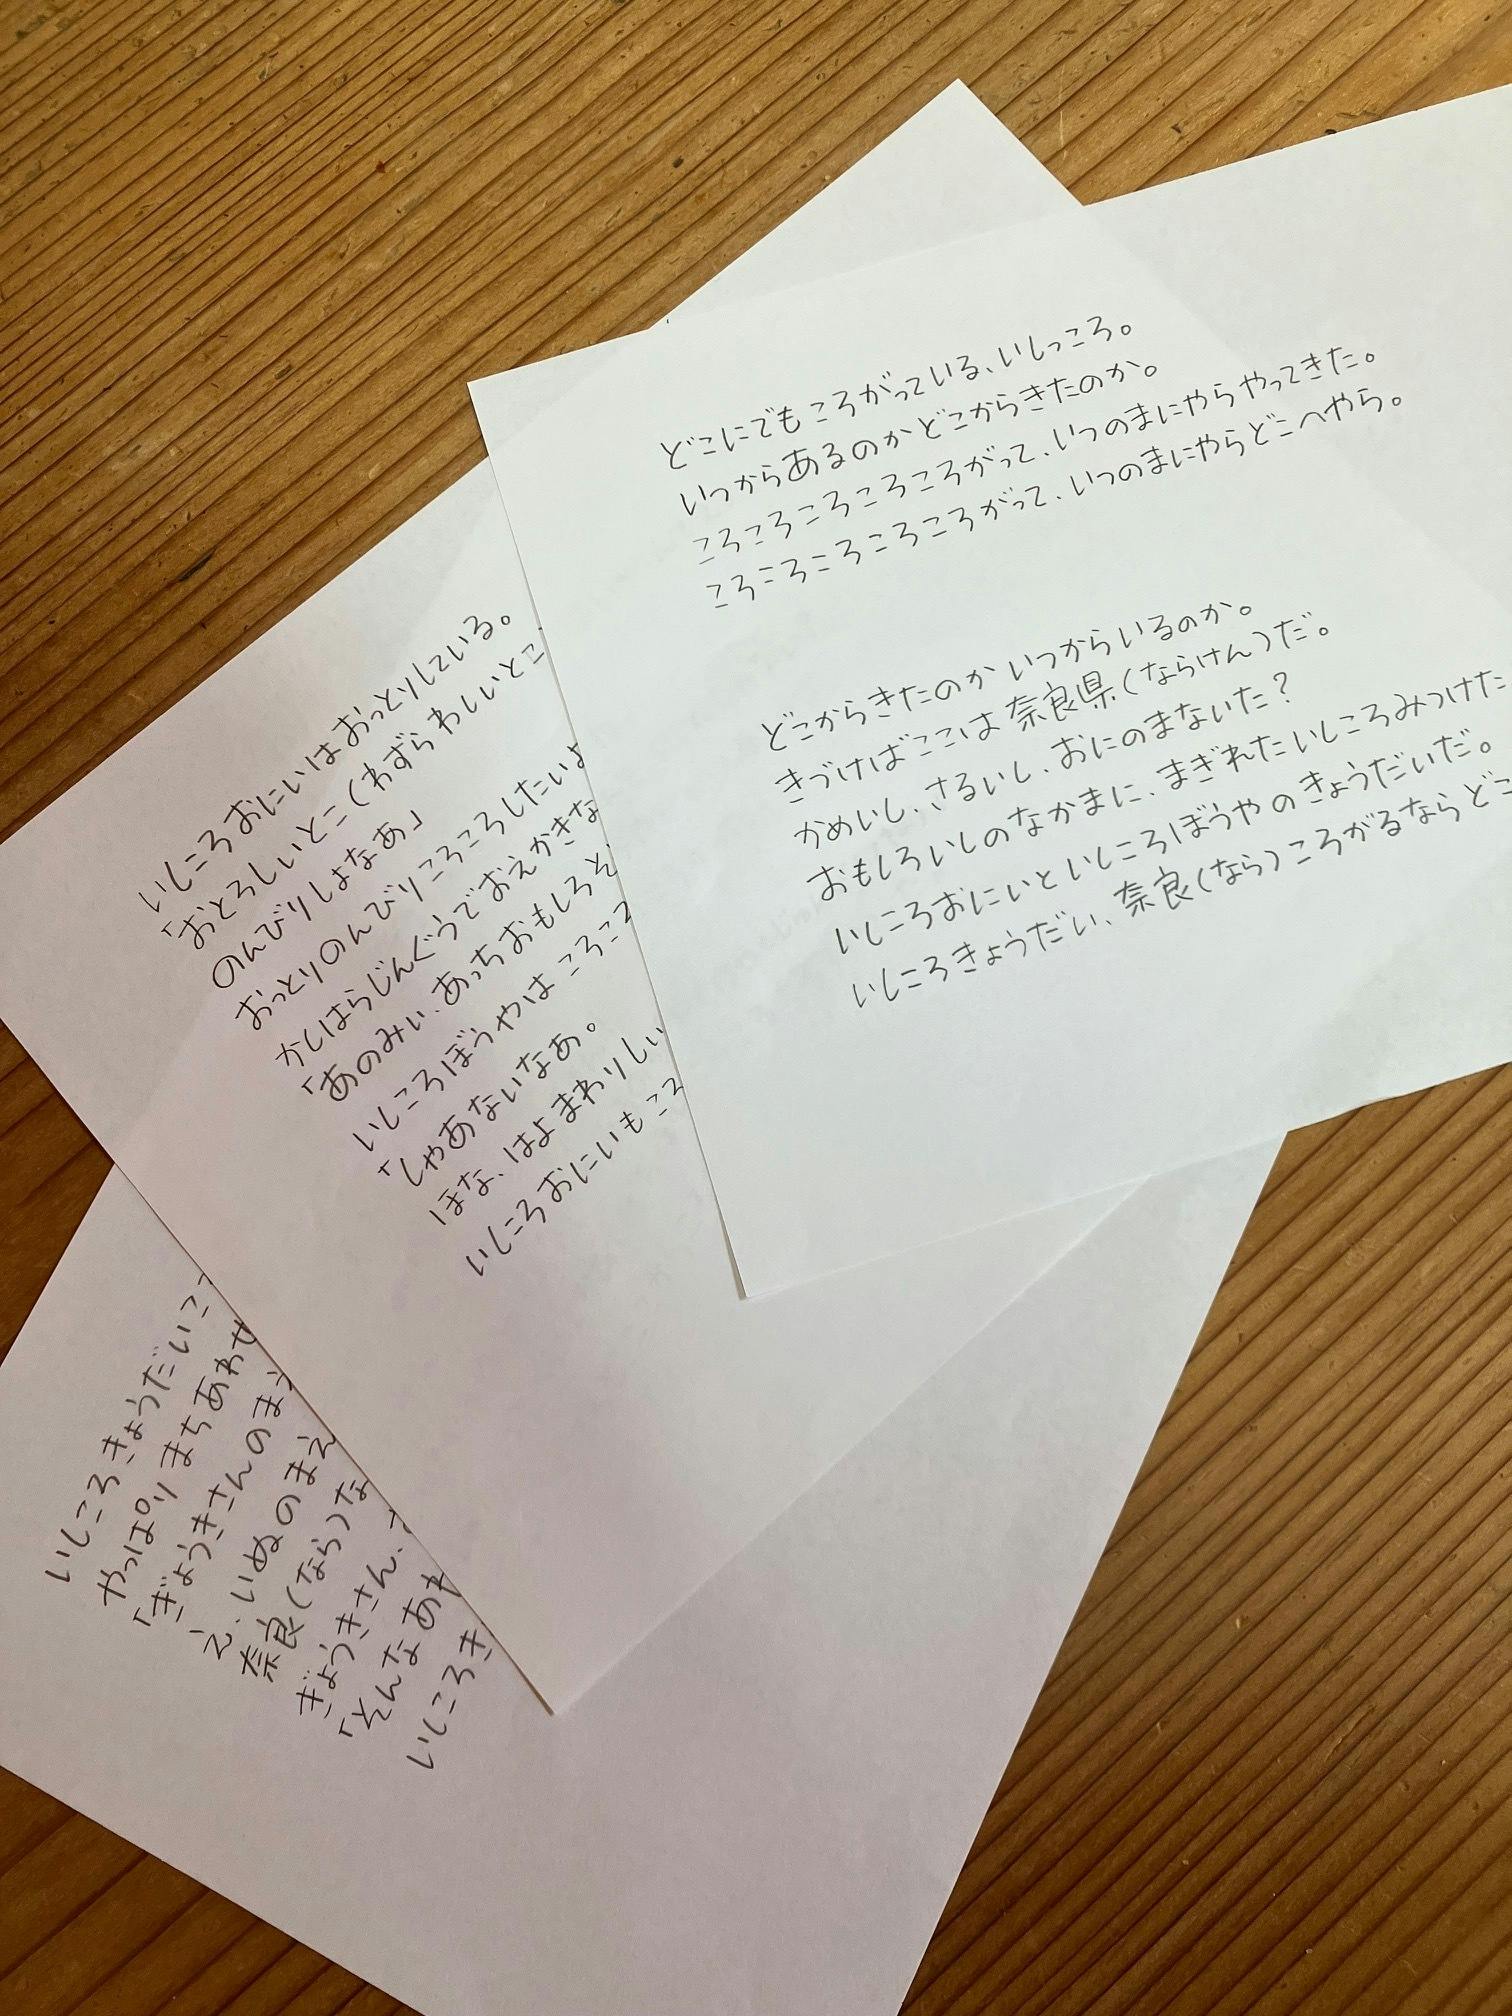 どこにでもころがっている、いしっころ。
いつからあるのかどこからきたのか。
ころころころころころがって、いつのまにやらやってきた。
ころころころころころがって、いつのまにやらどこへやら。
どこからきたのかいつからいるのか。
きづけばここは奈良県(ならけん)だ。
かめいし、さるいし、おにのまないた?
おもしろいしのなかまに、まぎれたいしころみつけた
いしころおにいといしころぼうやのきょうだいだ。
いしころきょうだい、奈良(なら)ころがるならどこ
いしころおにいはおっとりしている。
「おとろしいとこ(わずらわしいとこ
のんびりしよなあ」
おっとりのんびりころころしたいよ
かしはらじんぐうでおえかきな
「あのみぃ、あっちおもしろそ
いしころぼうやはころころ
「しゃあないなあ。
ほな、はよまわりしい
いしころおにいもころ
いしころきょうだいこ
やっぱりまちあわせ
「ぎょうきさんのまえ
え、いぬのまえ
奈良(なら)な
ぎょうきさん、
「そんなあわ
いしころき